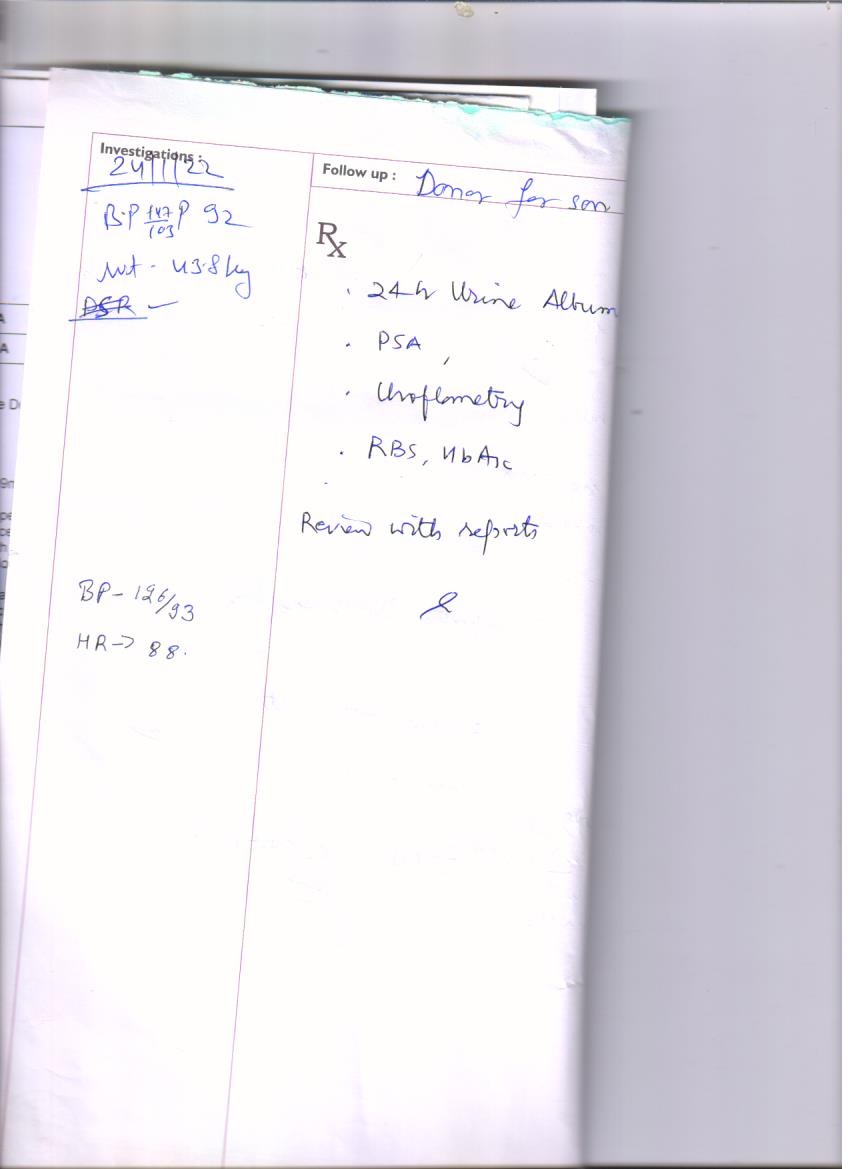 Investigations :
24/1/22
B.P 147/103 P 92
wt - 43.8 kg
BP - 126/93
HR → 88.
Follow up : Donor for son
Rx
· 24 h Urine Album
· PSA,
· Uroflometry
· RBS, HbA1c
Review with reports